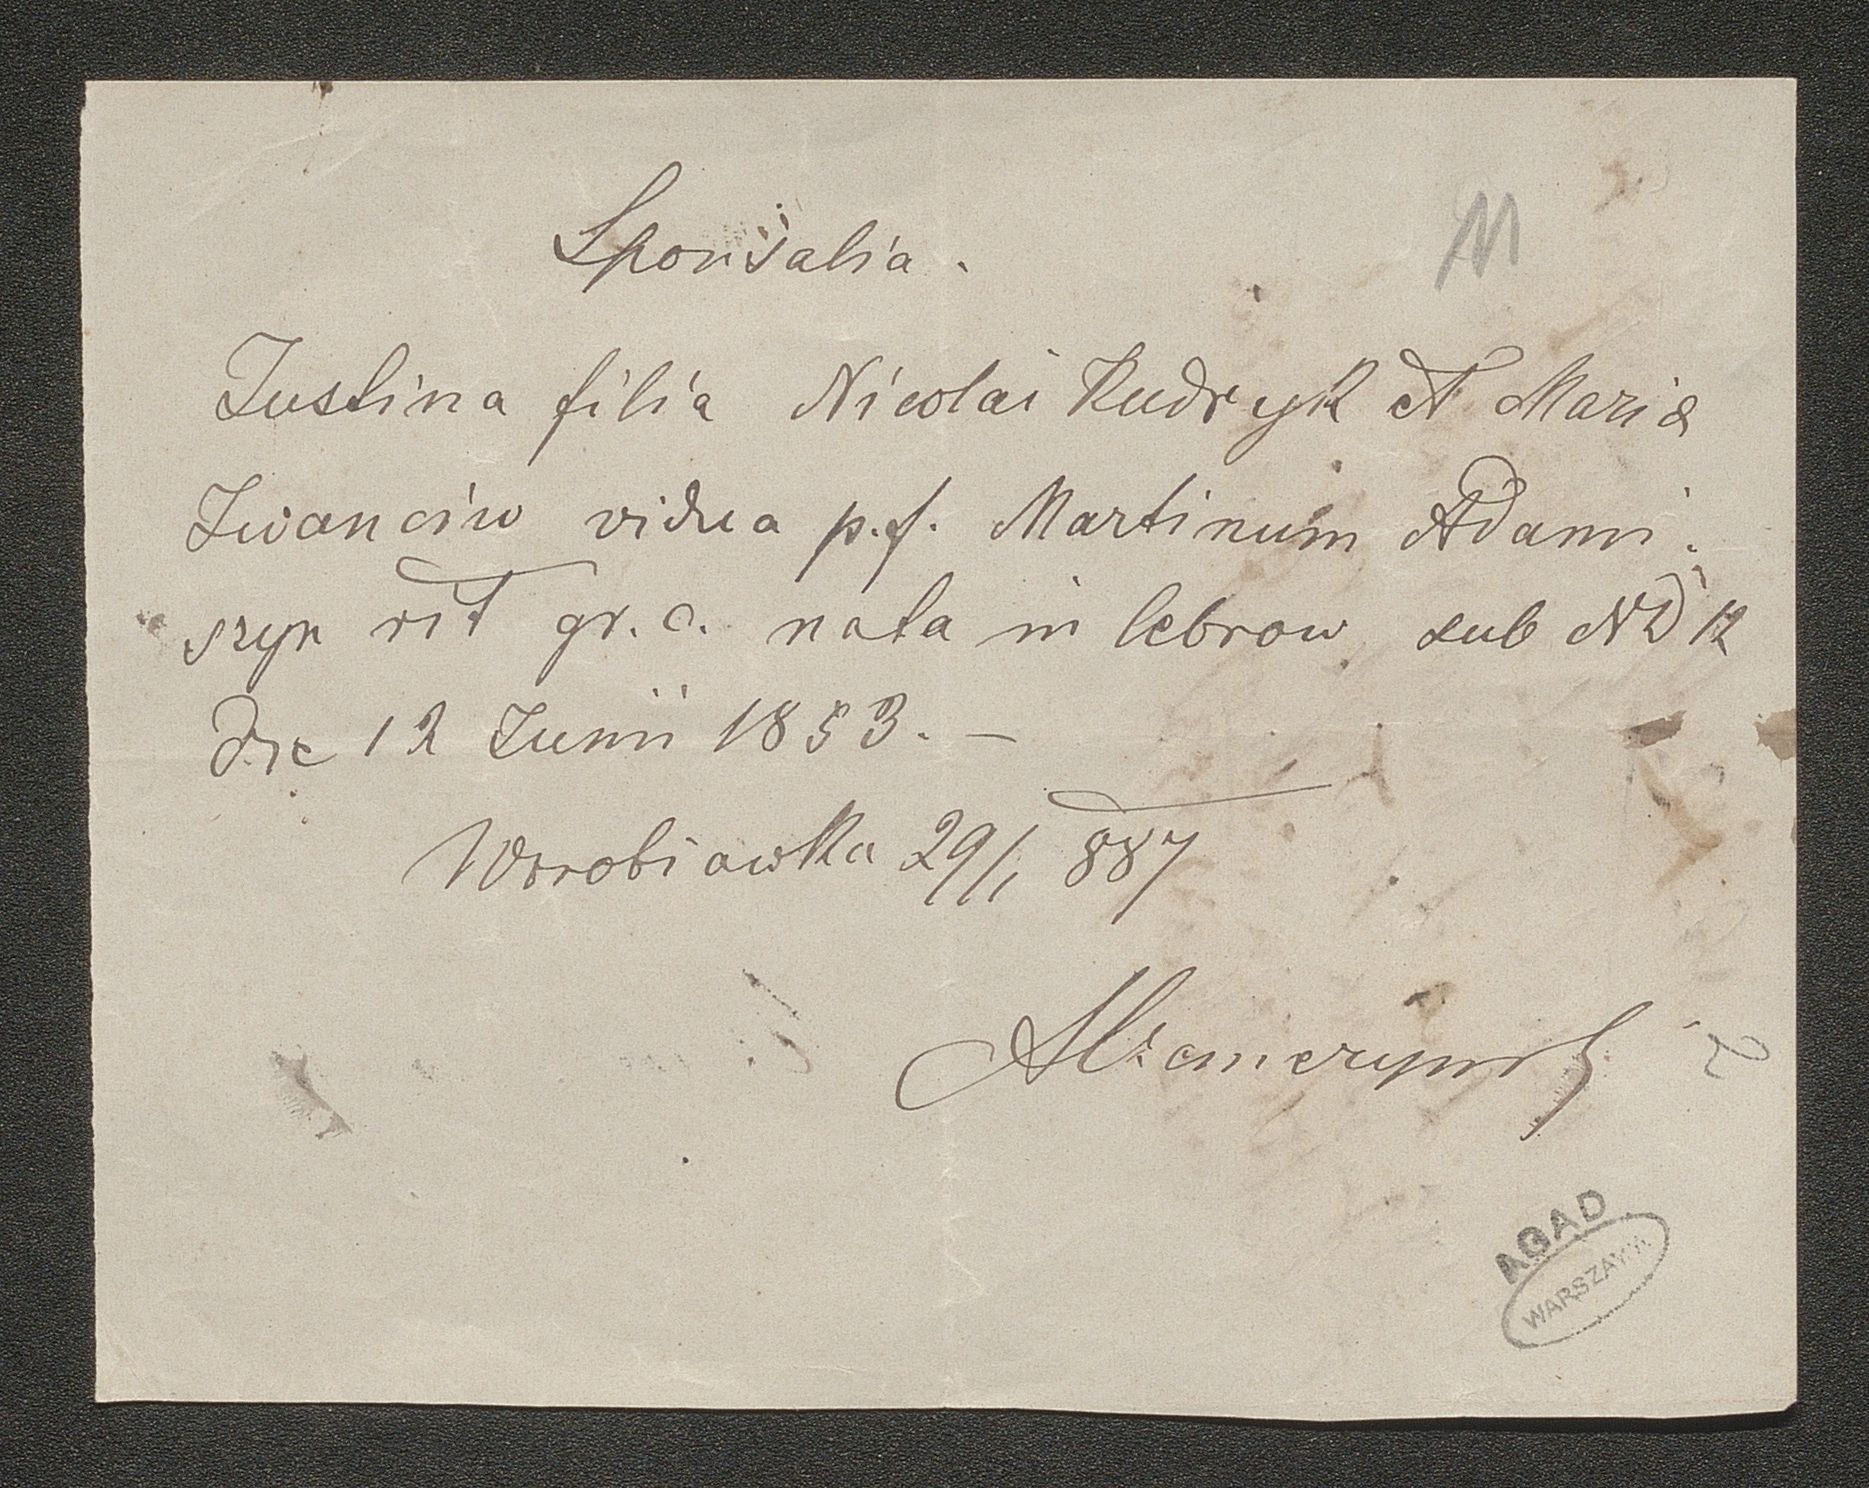 Sponsalia.
11
Justina filia Nicolai Kudryk et Maria
Iwanciw vidua p.f. Martinum Adami-
szyn rit gr. c. nata in Cebrow sub No 12
die 12 Junii 1853. —
Worobiowka 29/1 887
AGAD
WARSZAWA